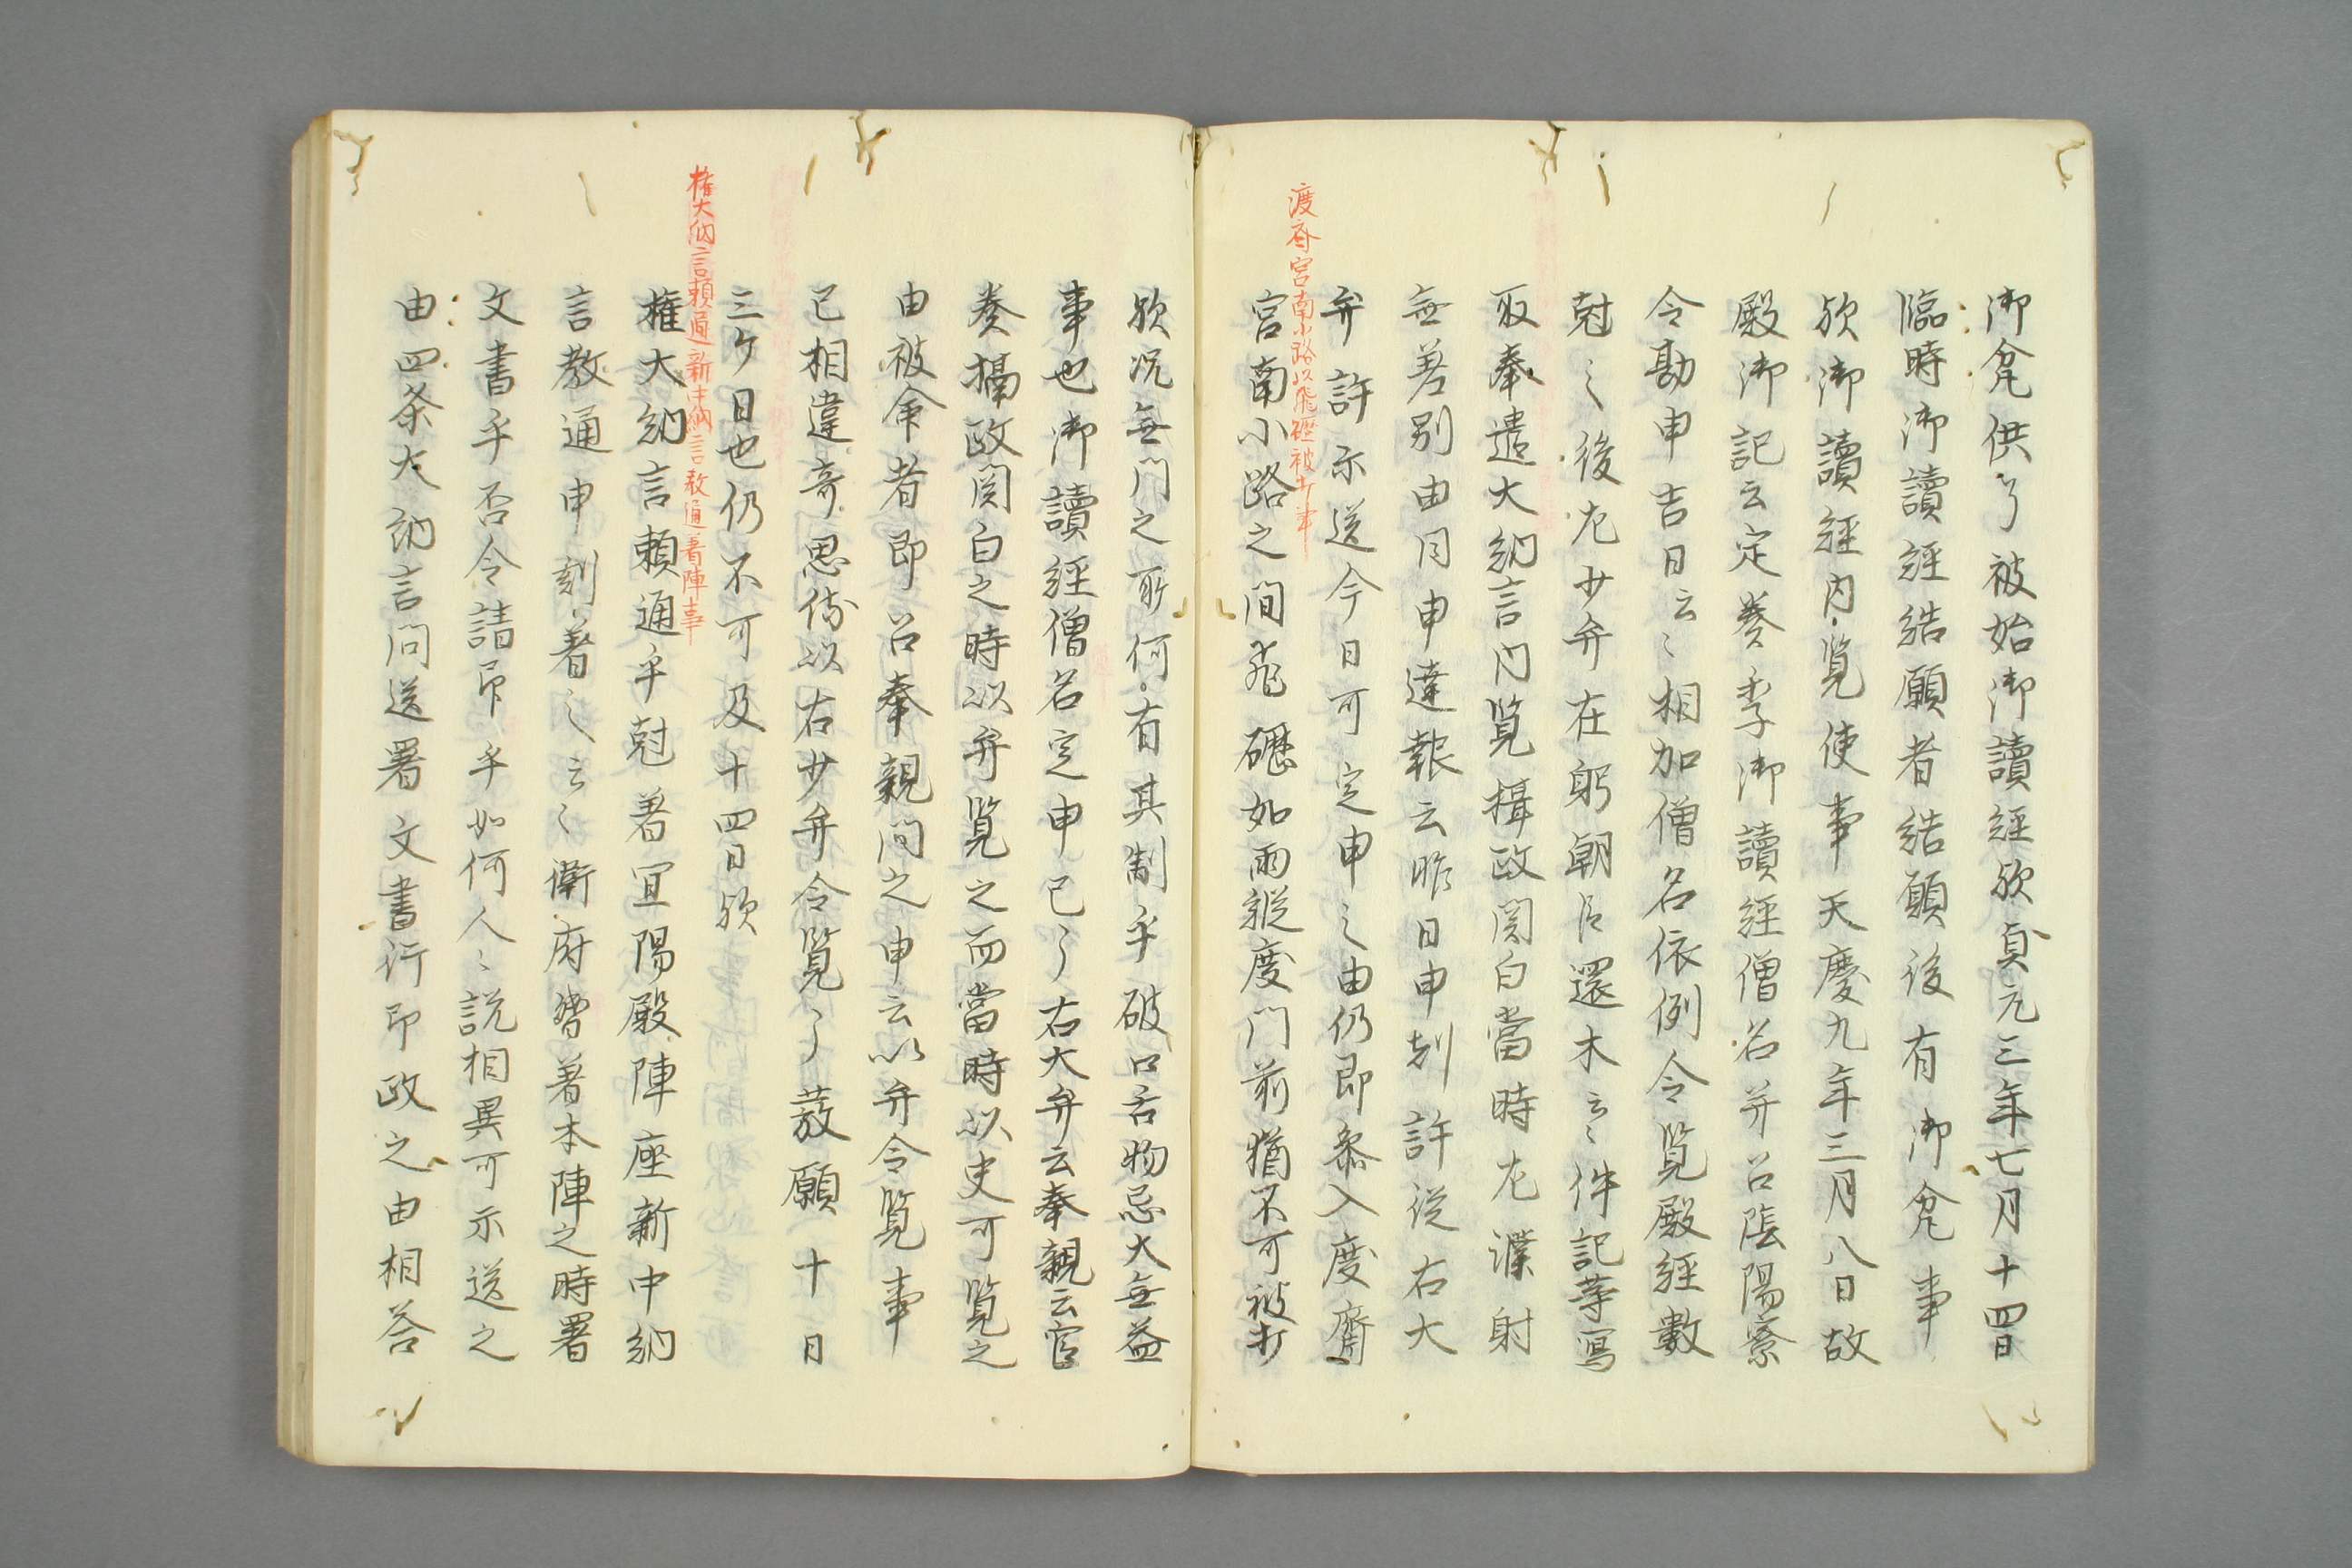 御盆供了被始御讀經欤貞元三年七月十四日
臨時御讀經結願者結願後有御盆事
欤御讀經内覧使事天慶九年三月八日故
殿御記云定奏季御讀經僧名并召陰陽寮
令勘申吉日云〻相加僧名依例令覧殿經數
尅之後左少弁在躬朝臣還来云〻件記等寫
取奉遣大納言内覧攝政関白當時左僕射
無差別由同申達報云昨日申剋許従右大
弁許示送今日可定申之由仍即参入度齋
渡斎宮南小路以飛礰被打事
宮南小路之間飛礰如雨縦度門前猶不可被打
欤况無門之所何有其制乎破口舌物忌大無益
事也御讀經僧名定申已了右大弁云奉親云官
奏攝政関白之時以弁覧之而當時以史可覧之
由被命者即召奉親問之申云以弁令覧事
已相違奇思侍以右少弁令覧了發願十日
三ケ日也仍不可及十四日欤
権大納言頼通新中納言教通著陣事
権大納言頼通乎尅著宜陽殿陣座新中納
言教通申刻著之云〻衛府督著本陣之時署
文書乎否令請印乎如何人〻説相異可示送之
由四条大納言問送署文書行印政之由相答